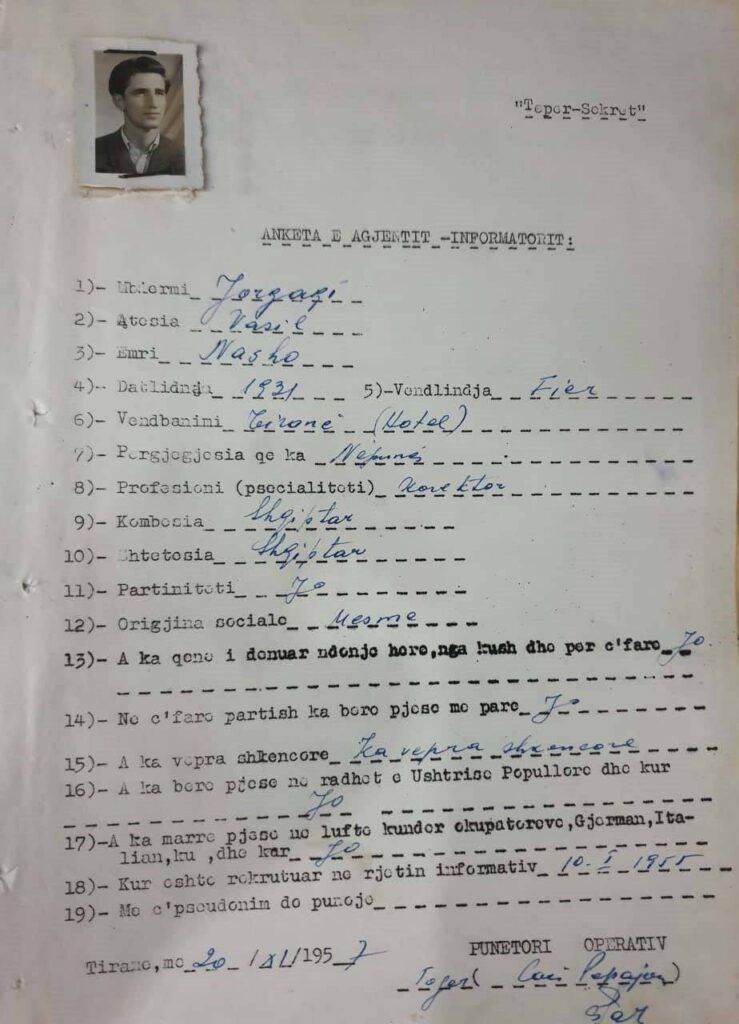 "Teper-Sekret"
ANKETA E AGJENTIT -INFORMATORIT:
1)- Mbiermi Jorgaqi
2)- Atesia Vasil
3)- Emri Nasho
4)- Datlidnja 1931 5)-Vendlindja Fier
6)- Vendbanimi Tiranë (Hotel)
7)- Pergjegjesia qe ka Nëpunës
8)- Profesioni (psecialiteti) Korektor
9)- Kombesia Shqiptar
10)- Shtetesia Shqiptar
11)- Partiniteti Jo
12)- Origjina sociale Mesme
13)- A ka qene i denuar ndonje here,nga kush dhe per c'fare Jo.
14)- Ne c'fare partish ka bere pjese me pare Jo
15)- A ka vepra shkencore Ka vepra shkencore
16)- A ka bere pjese ne radhet e Ushtrise Popullore dhe kur
Jo
17)-A ka marre pjese ne lufte kunder okupatoreve,Gjerman,Ita-
lian,ku ,dhe kur Jo
18)- Kur eshte rekrutuar ne rjetin informativ 10-I-1955
19)- Me c'pseudonim do punoje
Tirane,me 20 /XI/1957
PUNETORI OPERATIV
Toger( )